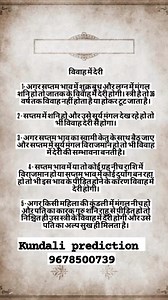 विवाह में देरी
1-अगर सप्तम भाव में शुक्र बुध और लग्न में मंगल
शनि हो तो जातक के विवाह में देरी होगी। स्त्री है तो 28
वर्ष तक विवाह नहीं होता है या होकर टूट जाता है।
2- सप्तम में शनि हो और उसे सूर्य मंगल देख रहे हो तो
भी विवाह देरी से होगा।
3-अगर सप्तम भाव का स्वामी केतु के साथ बैठ जाए
और सप्तम में सूर्य मंगल विराजमान हो तो भी विवाह
में देरी की सम्भावना बनती है।
4- सप्तम भाव में या तो कोई ग्रह नीच राशि में
विराजमान हो या सप्तम भाव में कोई दुर्योग बन रहा
हो तो भी इस भाव के पीड़ित होने के कारण विवाह में
देरी होगी।
5-अगर किसी महिला की कुंडली में मंगल नीच हो
और पति का कारक गुरु शनि राहु से पीड़ित हो तो
निश्चित ही उस स्त्री के विवाह में देरी होगी और उसे
पति का अल्प सुख ही मिलता है।
Kundali prediction
9678500739